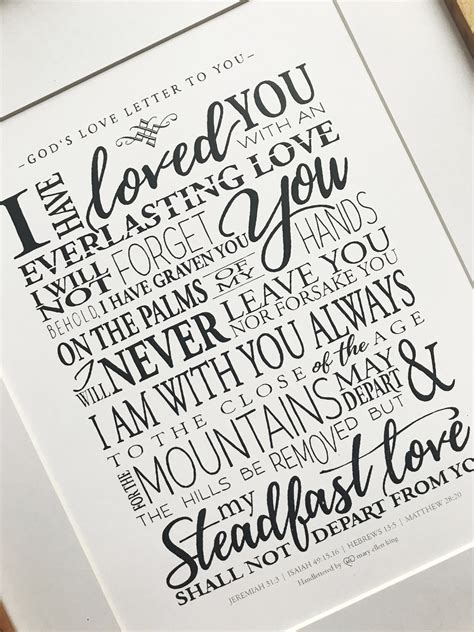 -GOD'S LOVE LETTER TO YOU-
I HAVE loved YOU
WITH AN
EVERLASTING LOVE
I WILL NOT FORGET You
BEHOLD, I HAVE GRAVEN YOU
ON THE PALMS OF MY HANDS
I WILL NEVER LEAVE YOU
NOR FORSAKE YOU
I AM WITH YOU ALWAYS
TO THE CLOSE of the AGE
FOR THE MOUNTAINS MAY DEPART &
THE HILLS BE REMOVED BUT
my Steadfast love
SHALL NOT DEPART FROM YO
JEREMIAH 31:3 | ISAIAH 49:15,16 | HEBREWS 13:5 | MATTHEW 28:20
Handlettered by mary ellen king